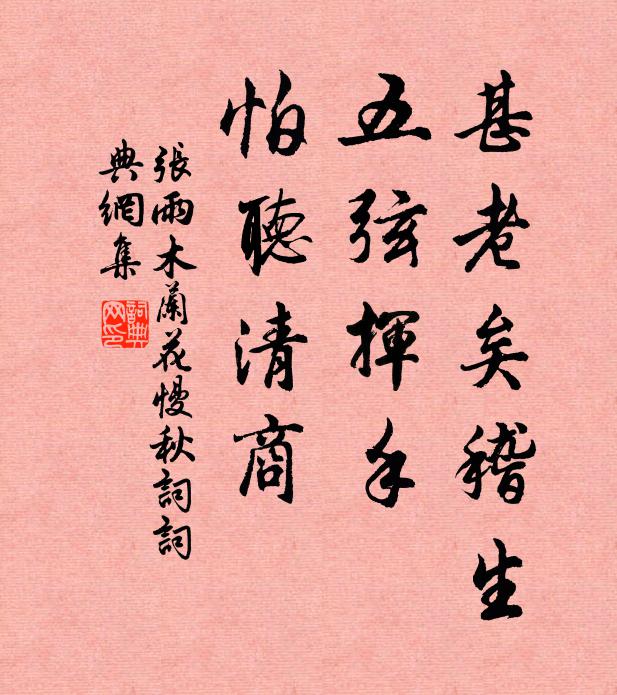 甚老矣稽生
五弦揮手
怕聽清商
張雨木蘭花慢秋詞詞
典網集
詞典
网印